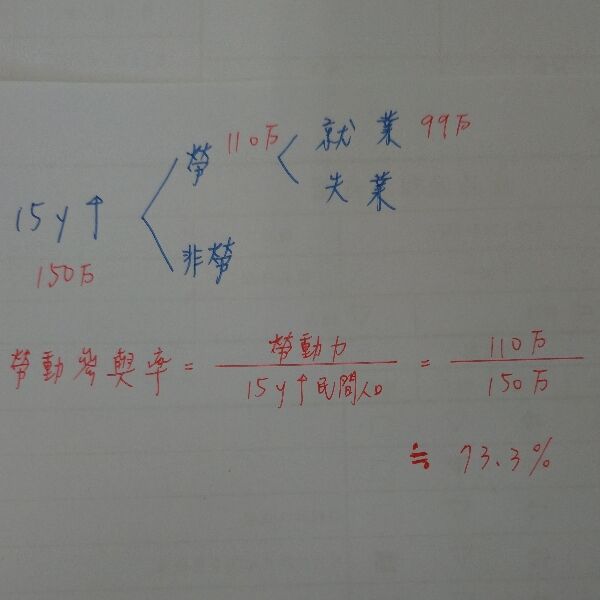 勞 110万 就業 99万
失業
15y↑
150万
非勞
勞動參與率 = 勞動力 / 15y↑民間人口 = 110万 / 150万
≒ 73.3%